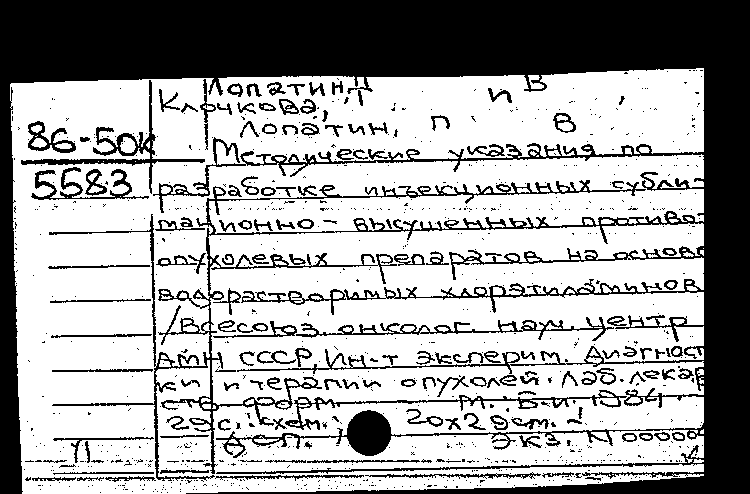 Лопатин П В
Клочкова, Т и
86-50К
5583
Лопатин, П В
Методические указания по
разработке инъекционных субли-
мационно-высушенных противо-
опухолевых препаратов на основе
водорастворимых хлорэтиламинов
/Всесоюз. онколог. науч. центр
АМН СССР, Ин-т эксперим. диагност
ки и терапии опухолей. Лаб. лекар
ств. форм. М. Б.и. 1984.
29 с. схем.; 20х29 см. -
Экз. N 000004